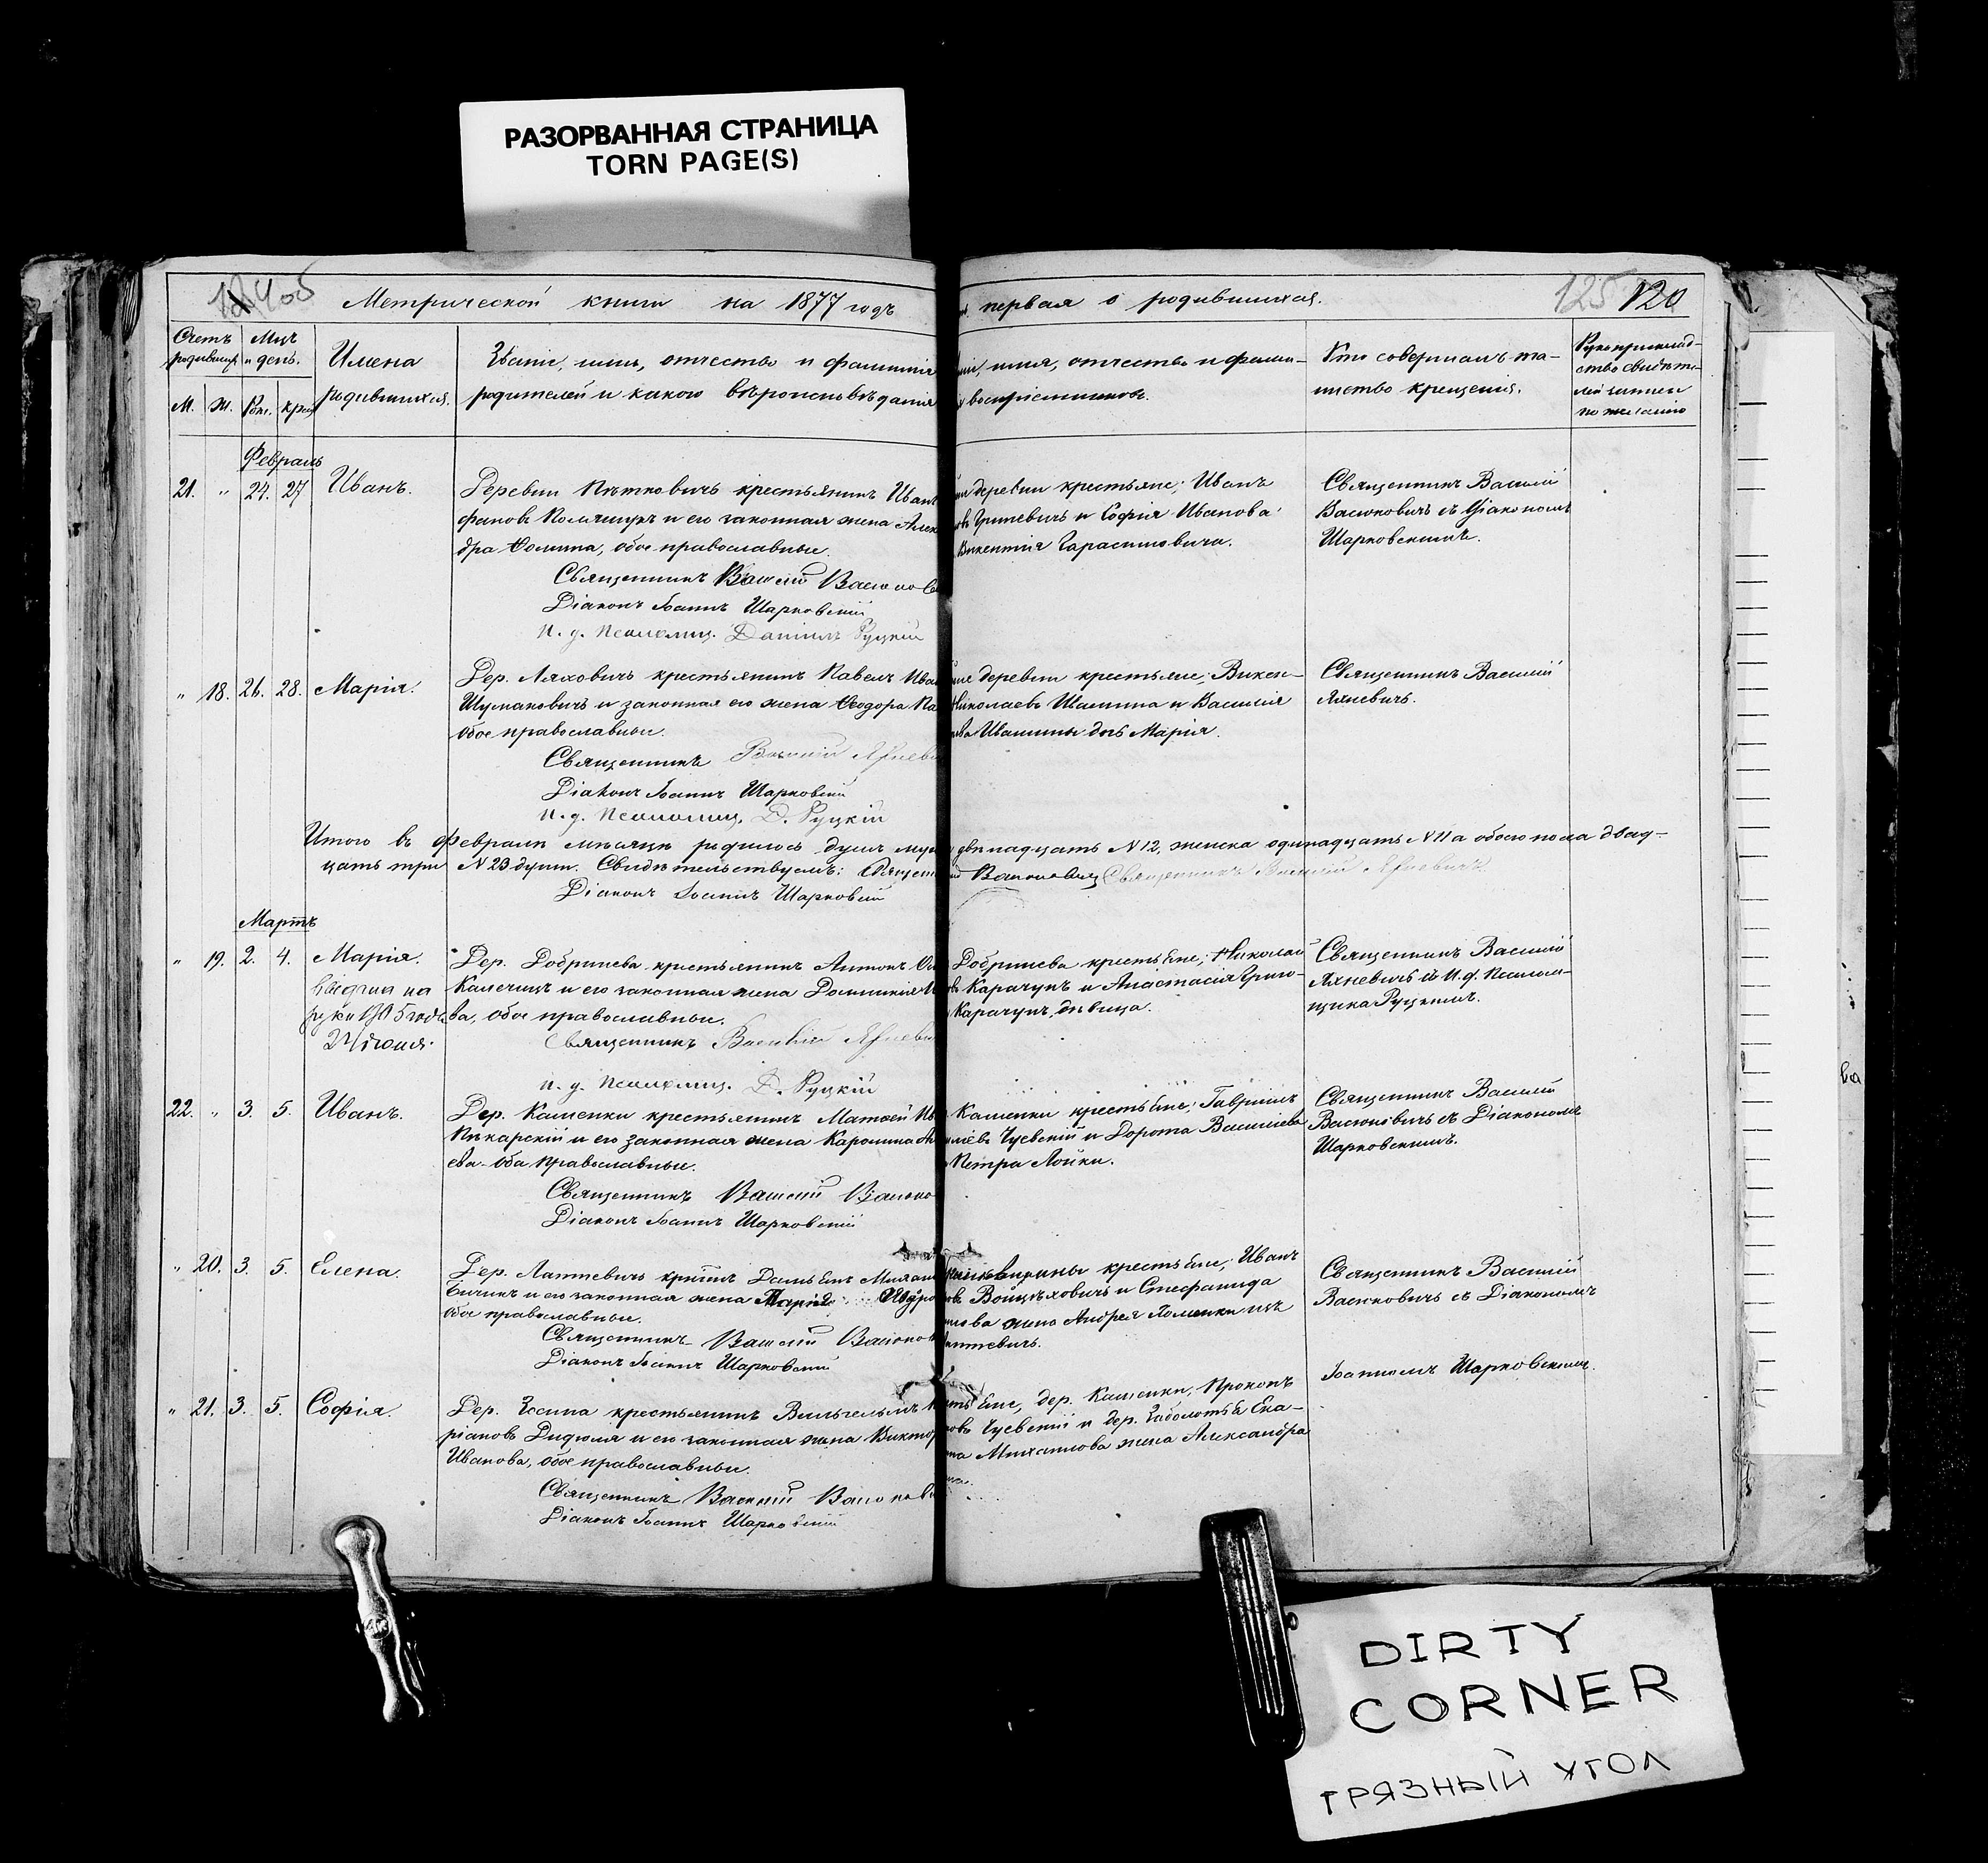 РАЗОРВАННАЯ СТРАНИЦА
TORN PAGE(S)
Метрической книги на 1877 годъ
первая о родившихся.
125 120
Счетъ родившихся
Мцъ и день.
М. Ж. Рож. крещ
Имена
родившихся.
Званіе, имя, отчество и фамилія
родителей и какого вѣроисповѣданія
имя, отчество и фами-
воспріемниковъ.
Кто совершалъ та-
инство крещенія.
Рукоприклад-
ство свидѣте-
лей записи
по желанію
Февраль
21. " 24. 27 Иванъ.
Деревни Пѣтковичъ крестьянинъ Иванъ
фановъ и его законная жена Алек
дра Ѳомина, обое православные.
Священникъ Василій
Діаконъ Іоаннъ Шарковскій
и. д. Псаломщ. Даніилъ Руцкій
деревни крестьяне; Иванъ
Гриневичъ и Софія Иванова
Викентія Гарасимовича.
Священникъ Василій
Васюковичъ съ Діакономъ
Шарковскимъ.
" 18. 26. 28. Марія.
Дер. Ляховичъ крестьянинъ Павелъ Ива
Шумаковичъ и законная его жена Ѳеодора Па
обое православные.
Священникъ Василій Яхневи
Діаконъ Іоаннъ Шарковскій
и. д. Псаломщ. Д. Руцкій
деревни крестьяне; Викен-
Николаевъ Шишина и Василія
Ивашины дочь Марія.
Священникъ Василій
Яхневичъ.
Итого въ Февралѣ мѣсяцѣ родилось душъ муж двѣнадцать N 12, женска одинадцать N 11 а обоего пола двад-
цать три N 23 душъ. Свидѣтельствуемъ: Священ Васюковичъ Священникъ Василій Яхневичъ
Діаконъ Іоаннъ Шарковскій
Мартъ
" 19. 2. 4. Марія.
на
руки 1905 года
24 іюня.
Дер. Добринева крестьянинъ Антонъ
Калечицъ и его законная жена Доминикія
ва, обое православные.
Священникъ Василій Яхневи
и. д. Псаломщ. Д. Руцкій
Добринева крестьяне; Николай
Карачунъ и Анастасія Григо-
Карачунъ, дѣвица.
Священникъ Василій
Яхневичъ и И. д. Псалом-
щика Руцкимъ.
22. " 3. 5. Иванъ.
Дер. Каменки крестьянинъ Матвей Ив
Пѣкарскій и его законная жена Каролина
ева оба православные.
Священникъ Василій Васюко
Діаконъ Іоаннъ Шарковскій
Каменки крестьяне; Гавріилъ
Чуевскій и Дорота Василіева
Петра Лойки.
Священникъ Василій
Васюковичъ съ Діакономъ
Шарковскимъ.
" 20. 3. 5. Елена.
Дер. Лаптевичъ крѣтинъ Даміанъ
и его законная жена Марія
обое православные.
Священникъ Василій Васюков
Діаконъ Іоаннъ Шарковскій
крестьяне; Иванъ
Войцѣховичъ и Стефанида
жена Андрея изъ
аптевичъ.
Священникъ Василій
Васюковичъ съ Діакономъ
Іоанномъ Шарковскимъ.
" 21. 3. 5. Софія.
Дер. крестьянинъ Вильгельмъ
ріановъ Дидюля и его законная жена Виктор
Иванова, обое православные.
Священникъ Василій Васюков
Діаконъ Іоаннъ Шарковскій
дер. Каменки, Прокопъ
Чуевскій и дер. Заболотья Ека-
Михаилова жена Александра
DIRTY
CORNER
ГРЯЗНЫЙ УГОЛ